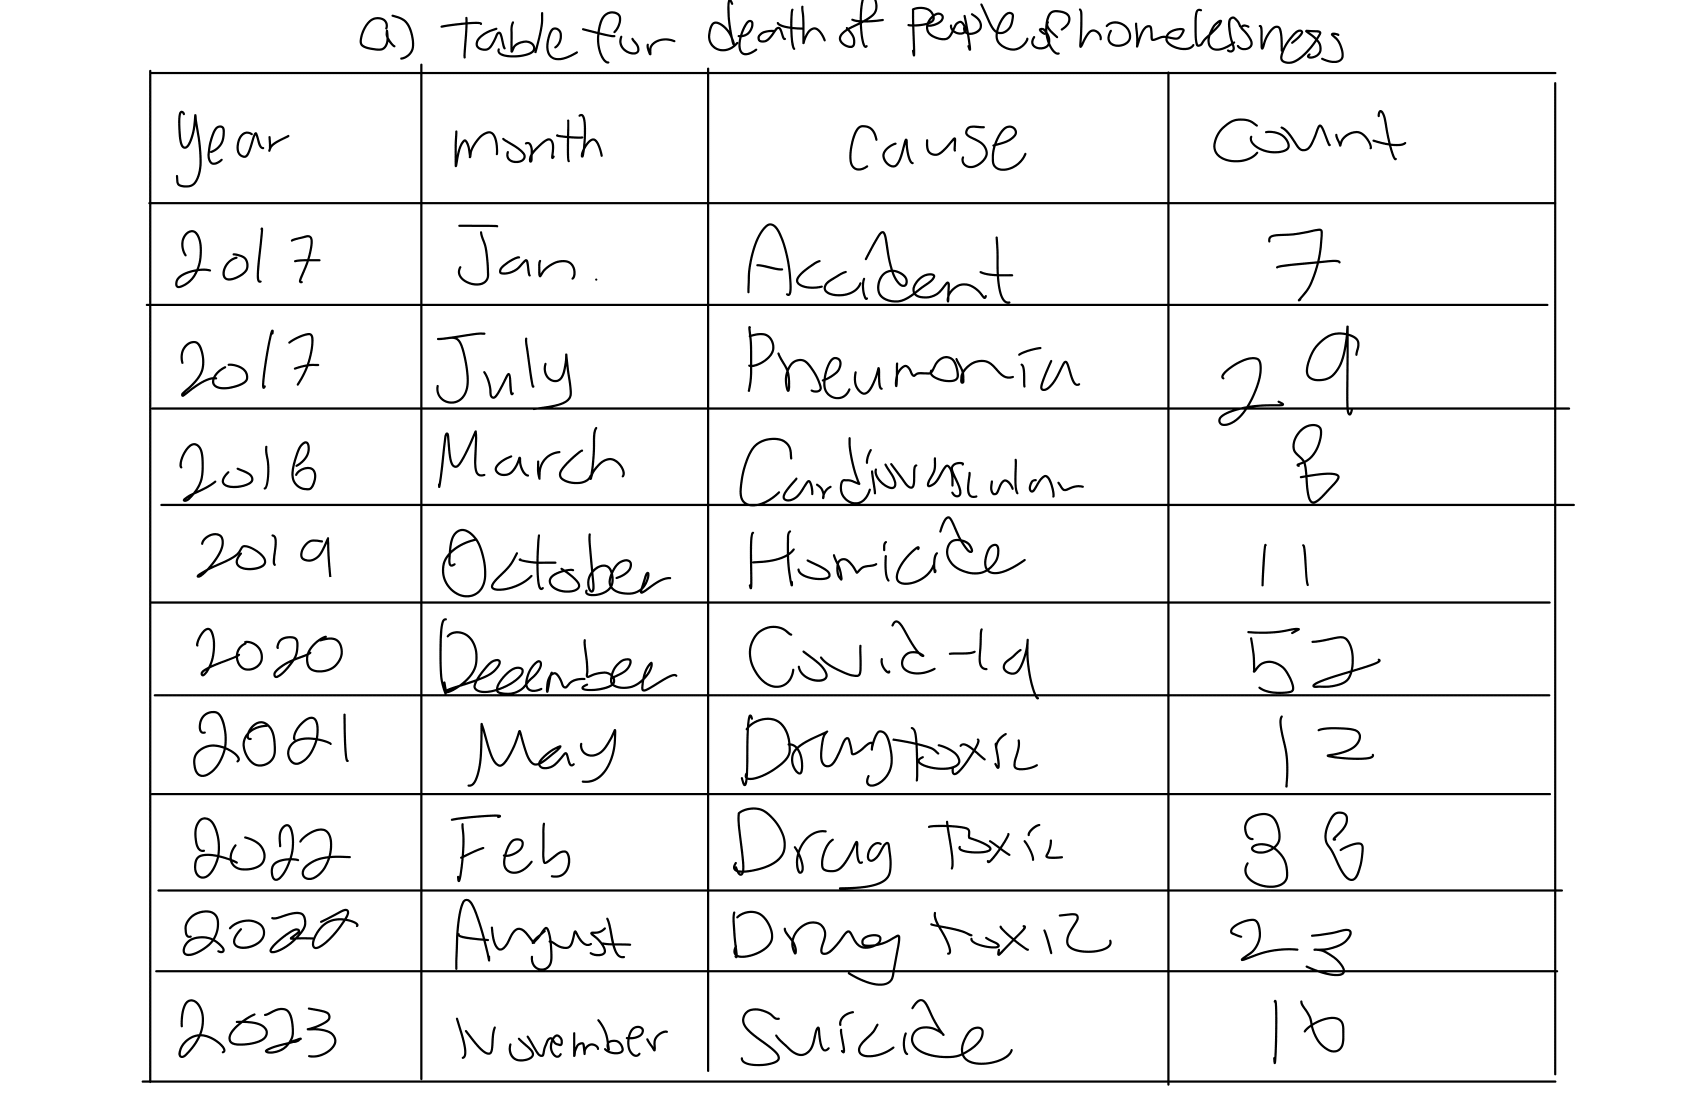 a) Table for death of people of homelessness
year month cause count
2017 Jan. Accident 7
2017 July Pneumonia 29
2018 March Cardiovascular 8
2019 October Homicide 11
2020 December Covid-19 52
2021 May Drug toxic 12
2022 Feb Drug toxic 38
2022 August Drug toxic 23
2023 November Suicide 10